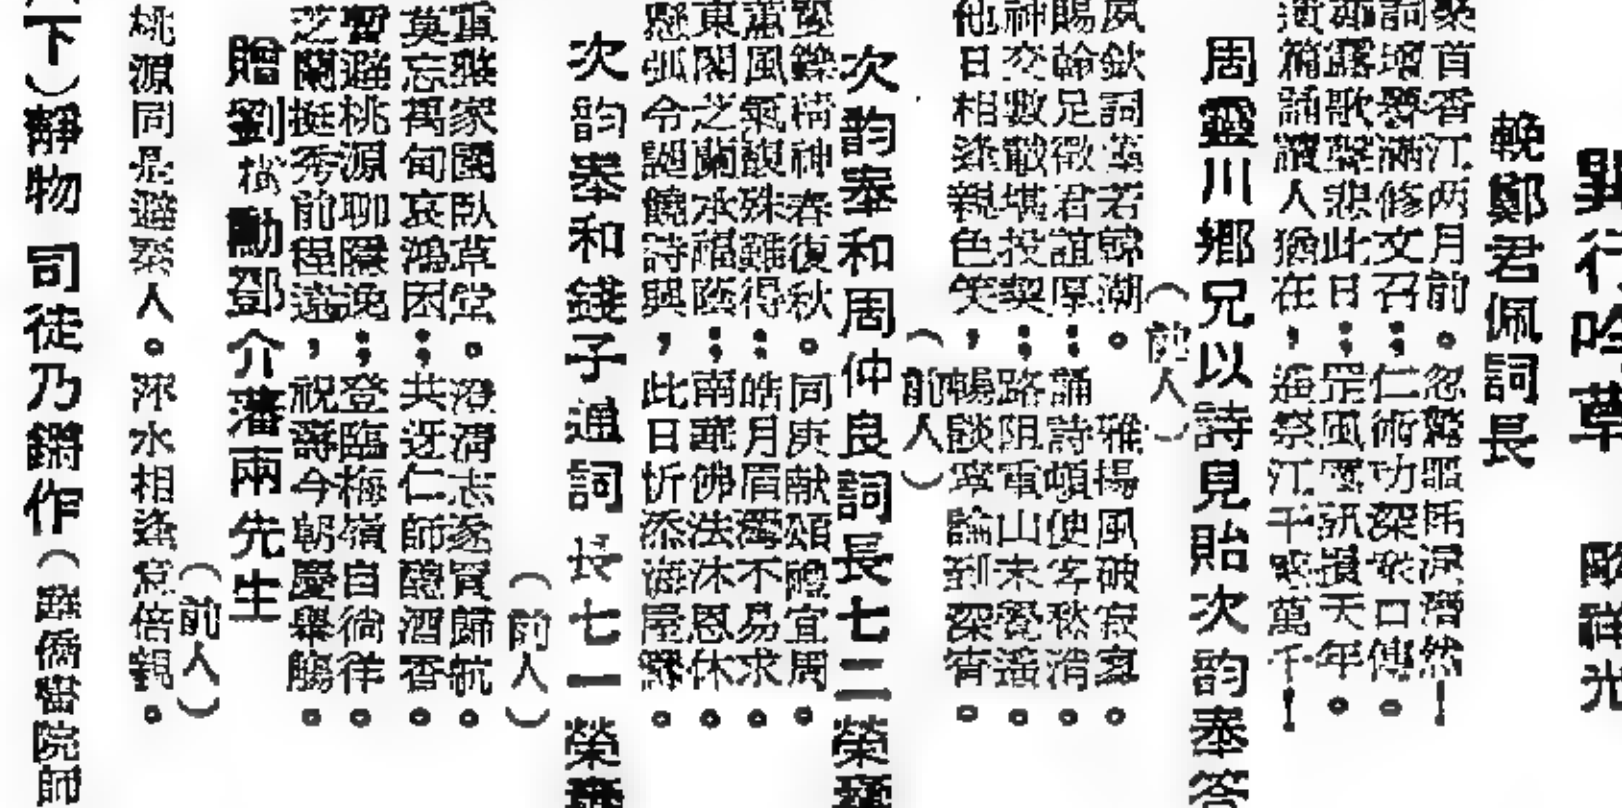 巽行吟草 歐陽光
輓鄭君佩詞長
翹首香江两月前。忽驚噩耗淚潸然!
詞壇夢滿修文召;仁術功深衆口傳。
薤露歌聲悲此日;罡風雲頽損天年。
遺篇誦讀人猶在,遙祭江干感萬千!
周靈川鄉兄以詩見貽次韵奉答
(前人)
夙欽詞藻若韓潮。雅揚風破寂寥。
賜翰足徵君誼厚;誦詩頓使客愁消
神交數載堪投契;路阻電山未覺遥。
他日相逢親色笑,暢談寧論到深宵。
(前人)
次韵奉和周仲良詞長七二榮壽
矍鑠精神春復秋。同庚献頌禮宜周。
蕙風氣馥殊難得;皓月眉濁不易求
東閣之蘭承福蔭;南華佛法沐恩休。
懸弧令誕饒詩興,此日忻添海屋籌。
次韵奉和錢子通詞長七一榮壽
(前人)
重整家園臥草堂。澄清志遂賀歸航。
莫忘萬甸哀鴻困;共迓仁師醴酒香。
暫避桃源聊隱逸;登臨梅嶺自徜徉。
芝蘭挺秀前程遠,祝壽今朝慶舉觴。
贈劉椒勵鄧介藩兩先生
(前人)
桃源同是避秦人。萍水相逢意倍親。
下)靜物 司徒乃鏘作(離僑醫院師